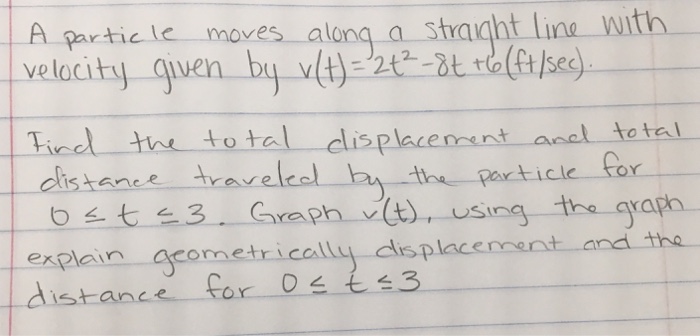 A particle moves along a straight line with
velocity given by v(t)=2t²-8t+6(ft/sec).
Find the total displacement and total
distance traveled by the particle for
0≤t≤3. Graph v(t), using the graph
explain geometrically displacement and the
distance for 0≤t≤3